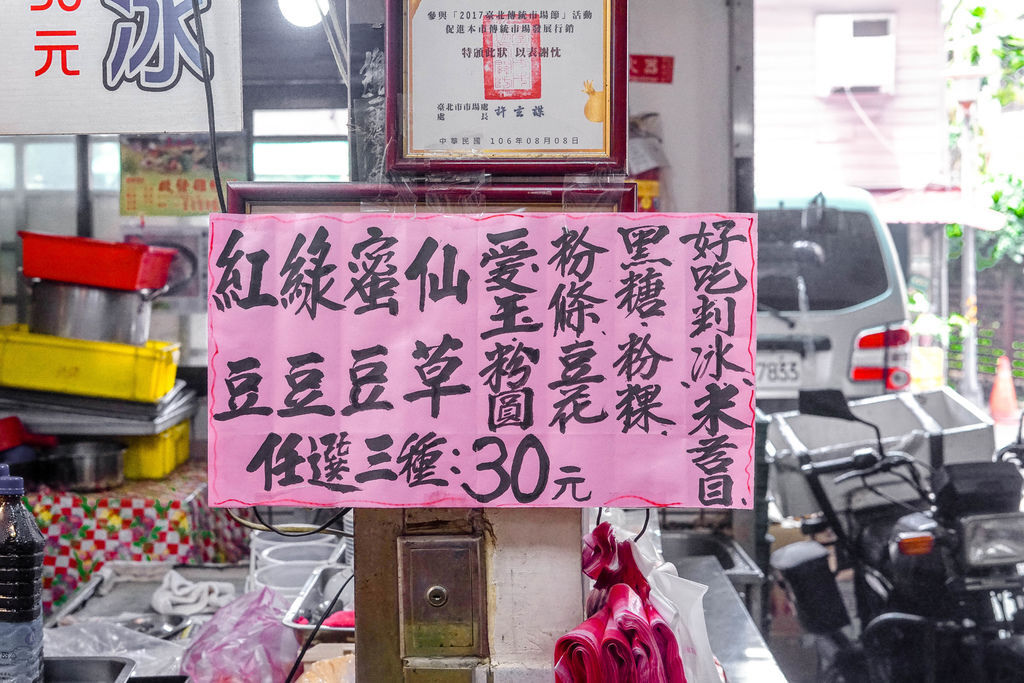 元
冰
參與「2017臺北傳統市場節」活動
促進本市傳統市場發展行銷
特頒此狀 以表謝忱
臺北市市場處
處長 許玄謀
中華民國 106年08月08日
好吃剉冰、米苔目、
黑糖、粉粿、
粉條、豆花
愛玉、粉圓
仙草
蜜豆
綠豆
紅豆
任選三種:30元
7833